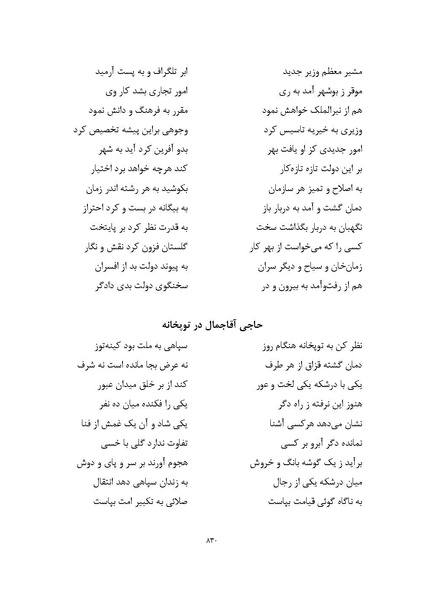 مشیر معظم وزیر جدید ابر تلگراف و به پست آرمید
موقر ز بوشهر آمد به ری امور تجاری بشد کار وی
هم از نیرالملک خواهش نمود مقرر به فرهنگ و دانش نمود
وزیری به خیریه تاسیس کرد وجوهی براین پیشه تخصیص کرد
امور جدیدی کز او یافت بهر بدو آفرین کرد آید به شهر
بر این دولت تازه تازه‌کار کند هرچه خواهد برد اختیار
به اصلاح و تمیز هر سازمان بکوشید به هر رشته اندر زمان
دمان گشت و آمد به دربار باز به بیگانه در بست و کرد احتراز
نگهبان به دربار بگذاشت سخت به قدرت نظر کرد بر پایتخت
کسی را که می‌خواست از بهر کار گلستان فزون کرد نقش و نگار
زمان‌خان و سیاح و دیگر سران به پیوند دولت بد از افسران
هم از رفت‌وآمد به بیرون و در سخنگوی دولت بدی دادگر
حاجی آقاجمال در توپخانه
نظر کن به توپخانه هنگام روز سپاهی به ملت بود کینه‌توز
دمان گشته قزاق از هر طرف نه عرض بجا مانده است نه شرف
یکی با درشکه یکی لخت و عور کند از بر خلق میدان عبور
هنوز این نرفته ز راه دگر یکی را فکنده میان ده نفر
نشان می‌دهد هرکسی آشنا یکی شاد و آن یک غمش از فنا
نمانده دگر آبرو بر کسی تفاوت ندارد گلی با خسی
برآید ز یک گوشه بانگ و خروش هجوم آورند بر سر و پای و دوش
میان درشکه یکی از رجال به زندان سپاهی دهد انتقال
به ناگاه گوئی قیامت بپاست صلائی به تکبیر امت بپاست
۸۳۰